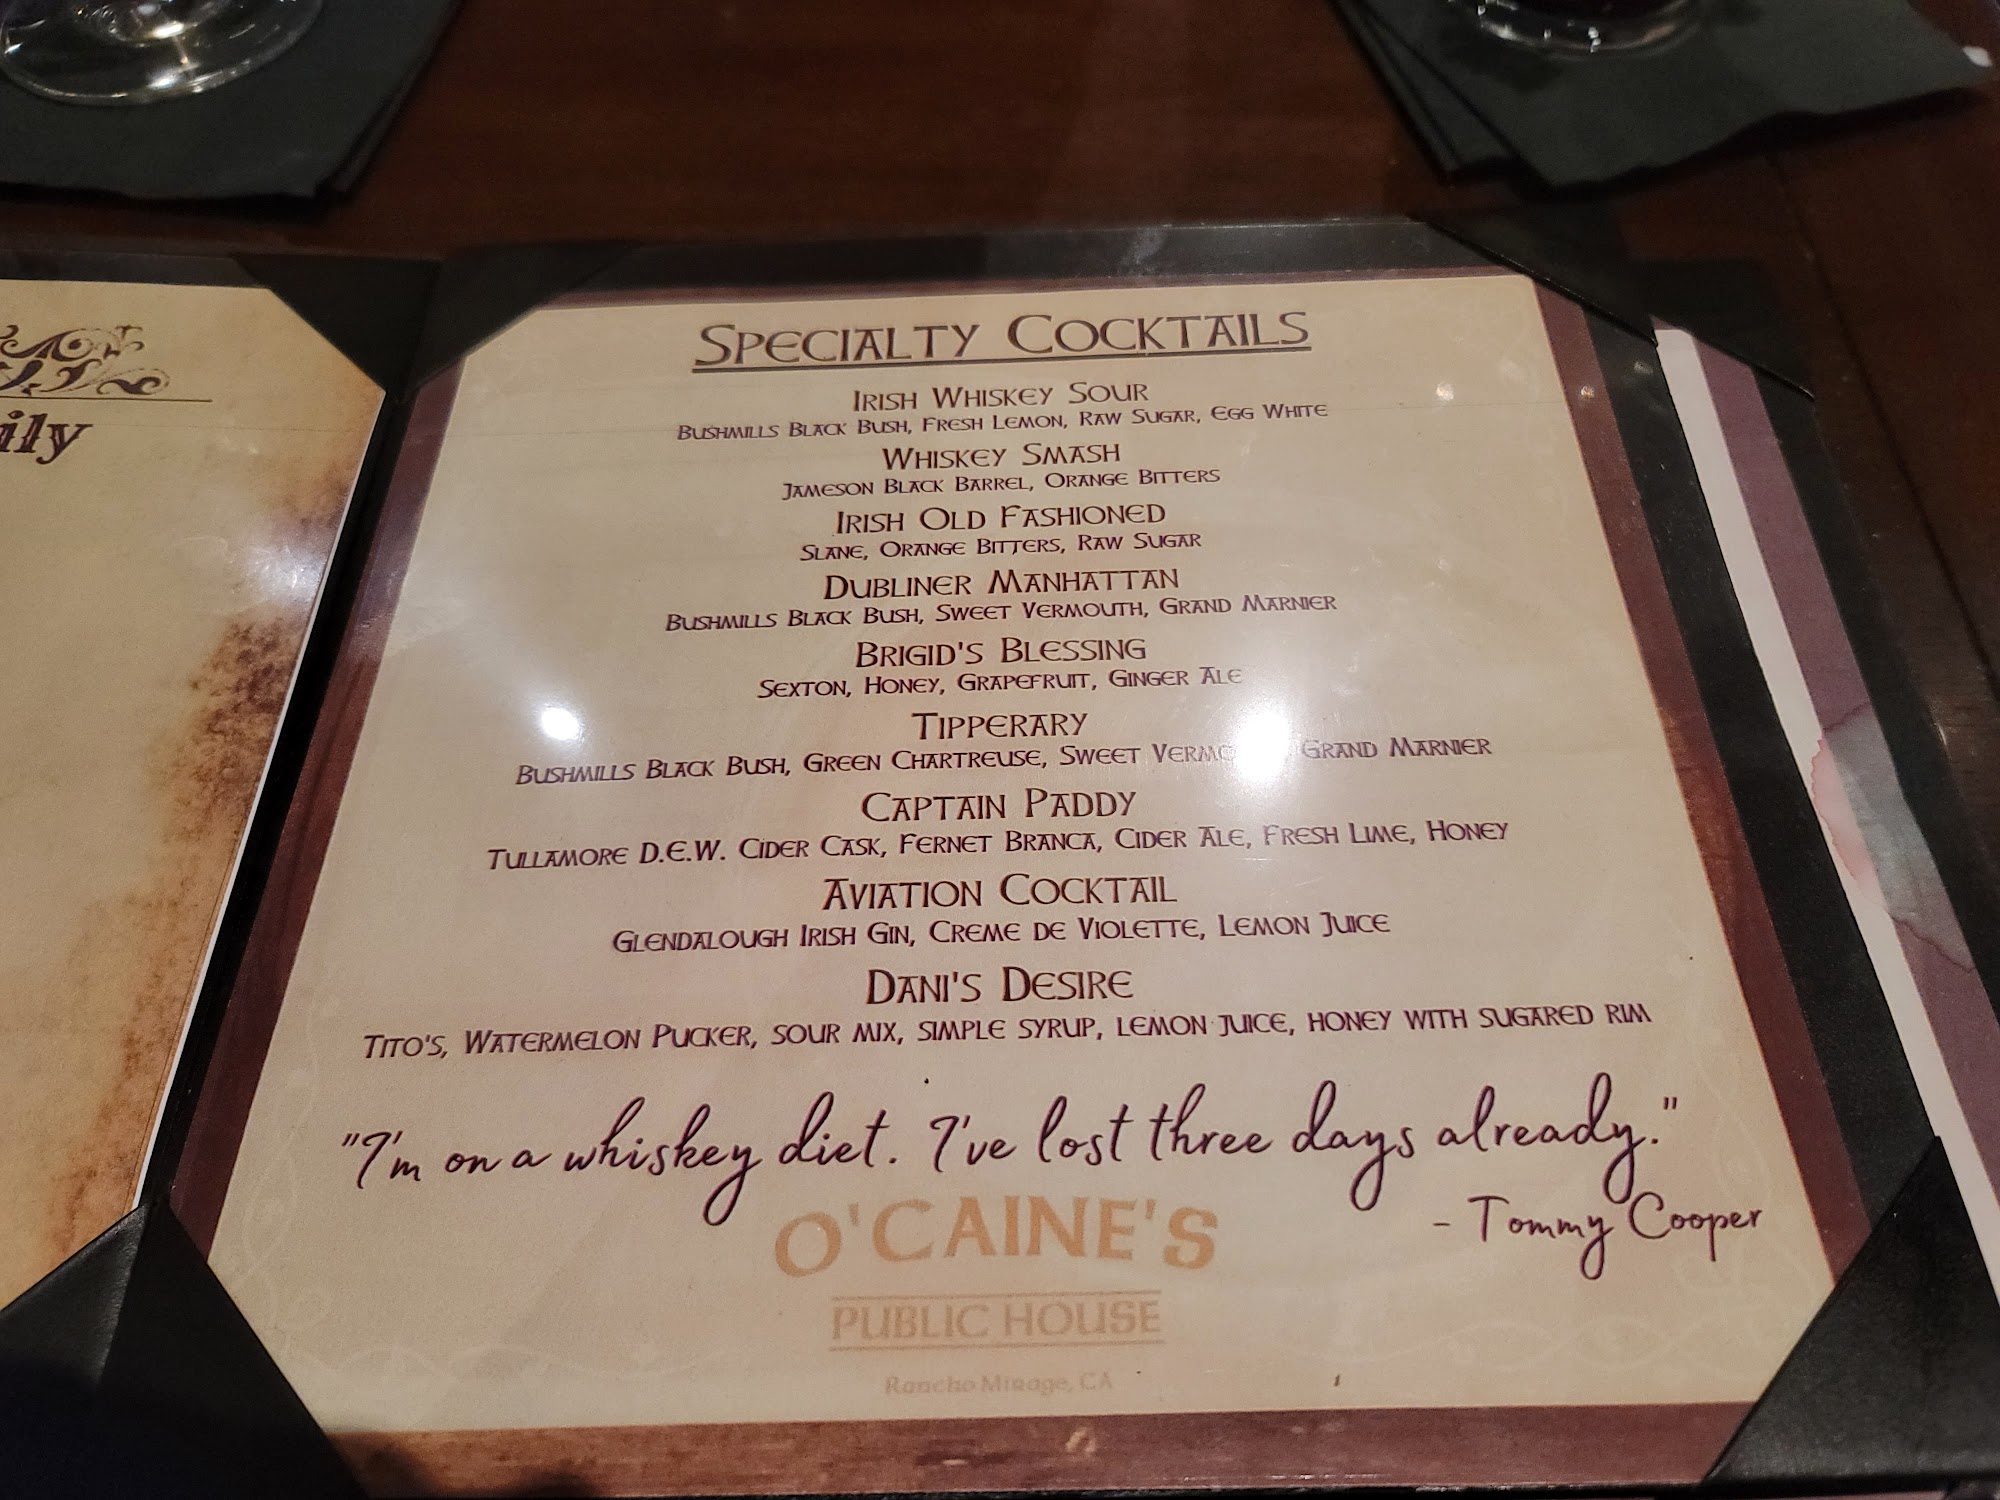 ily
Specialty Cocktails
Irish Whiskey Sour
Bushmills Black Bush, Fresh Lemon, Raw Sugar, Egg White
Whiskey Smash
Jameson Black Barrel, Orange Bitters
Irish Old Fashioned
Slane, Orange Bitters, Raw Sugar
Dubliner Manhattan
Bushmills Black Bush, Sweet Vermouth, Grand Marnier
Brigid's Blessing
Sexton, Honey, Grapefruit, Ginger Ale
Tipperary
Bushmills Black Bush, Green Chartreuse, Sweet Grand Marnier
Captain Paddy
Tullamore D.E.W. Cider Cask, Fernet Branca, Cider Ale, Fresh Lime, Honey
Aviation Cocktail
Glendalough Irish Gin, Creme de Violette, Lemon Juice
Dani's Desire
Tito's, Watermelon Pucker, sour mix, simple syrup, lemon juice, honey with sugared rim
"I'm on a whiskey diet. I've lost three days already."
- Tommy Cooper
O'CAINE'S
PUBLIC HOUSE
Rancho Mirage, CA